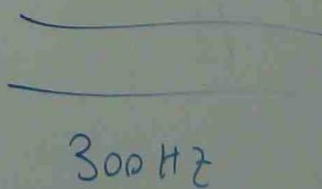 300 Hz